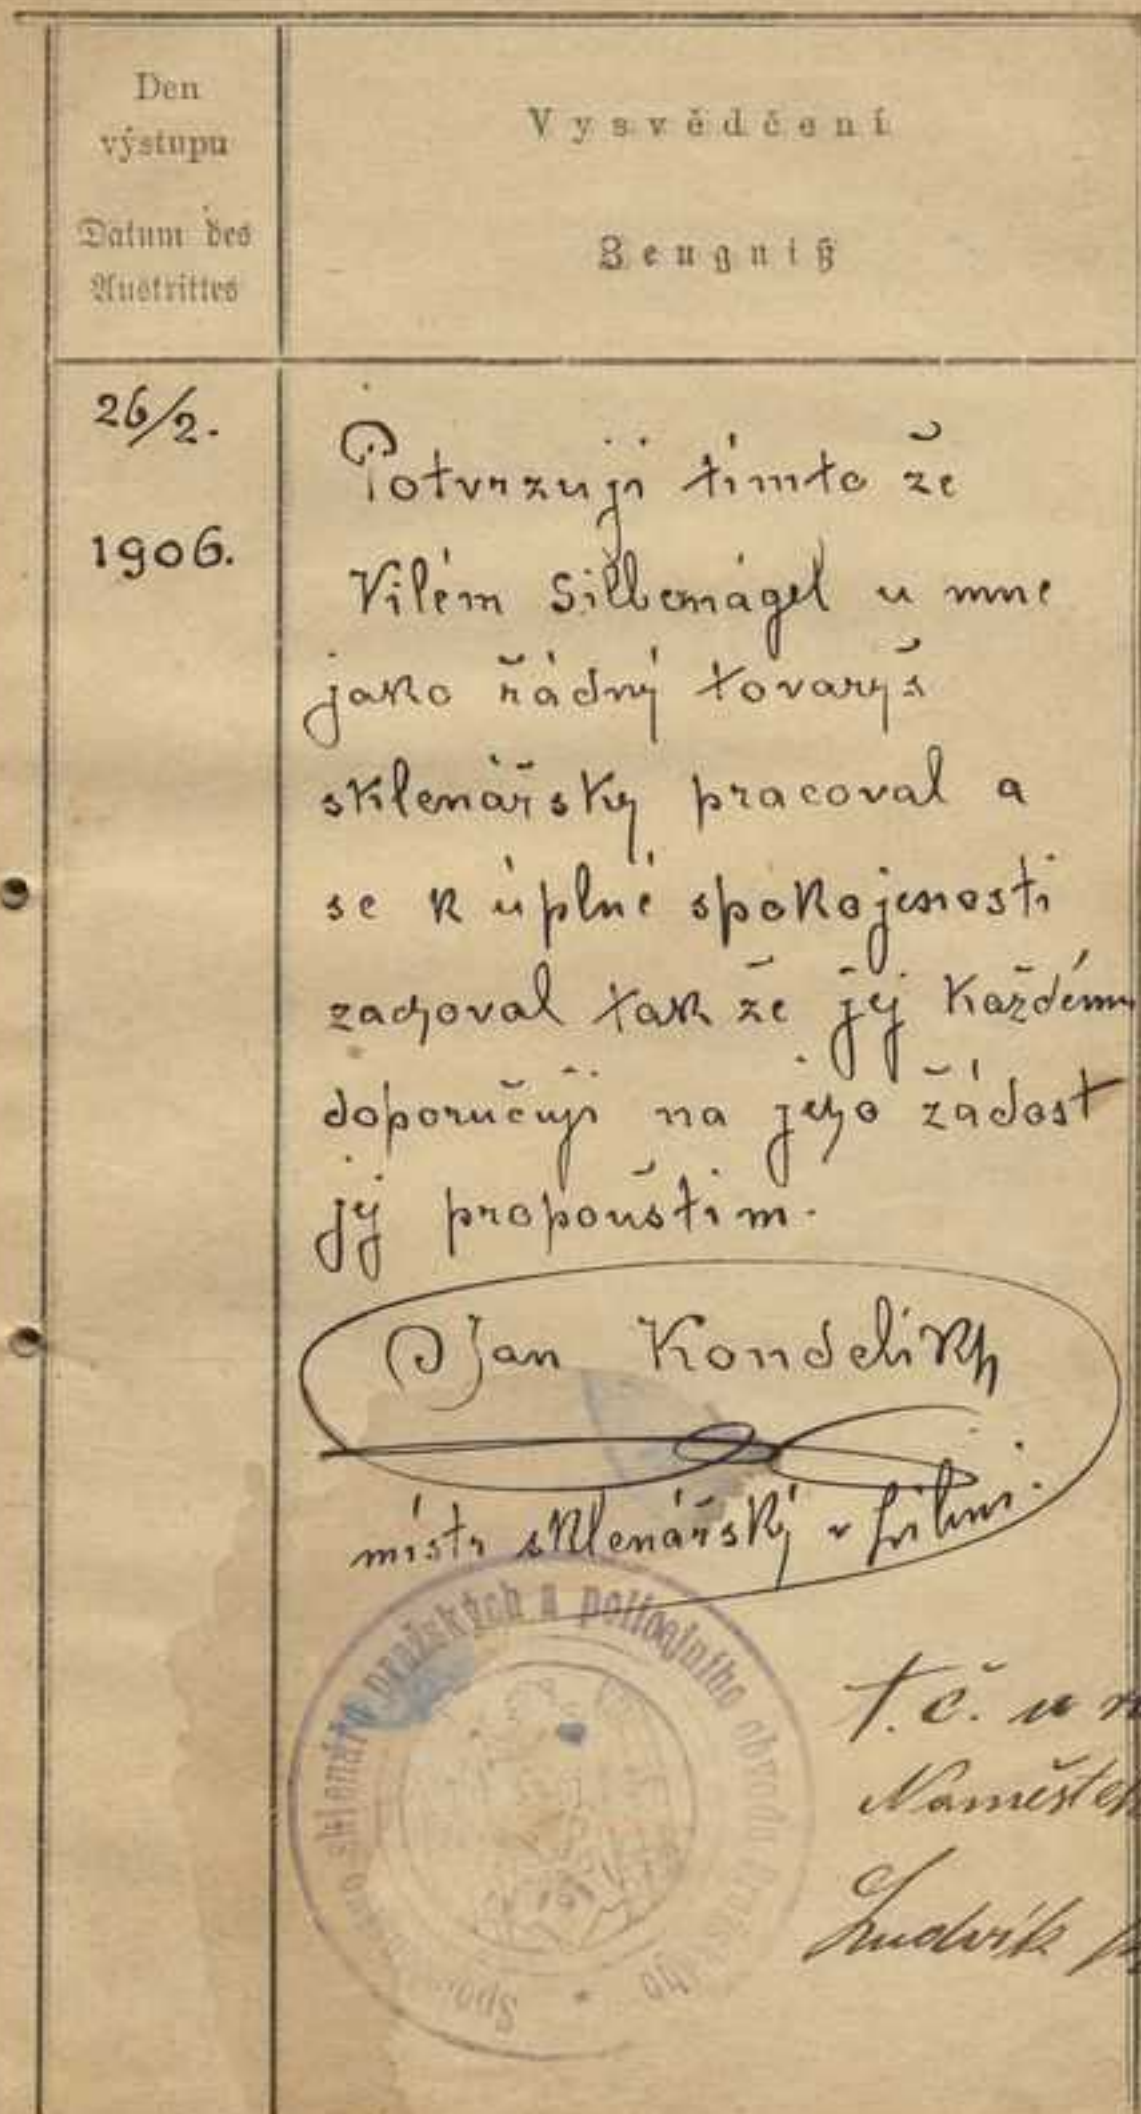 Den
výstupu
Datum des
Austrittes
Vysvědčení
Zeugniß
26/2.
1906.
Potvrzuji tímto že
Vilém Silbernágel u mne
jako řádný tovaryš
sklenářsky pracoval a
se k úplné spokojenosti
zachoval tak že jej každému
doporučuji na jeho žádost
jej propouštim.
Jan Kondelík
místr sklenářský v
sklenářů pražských a policejního obvodu pražského
t. č.
Ludvík